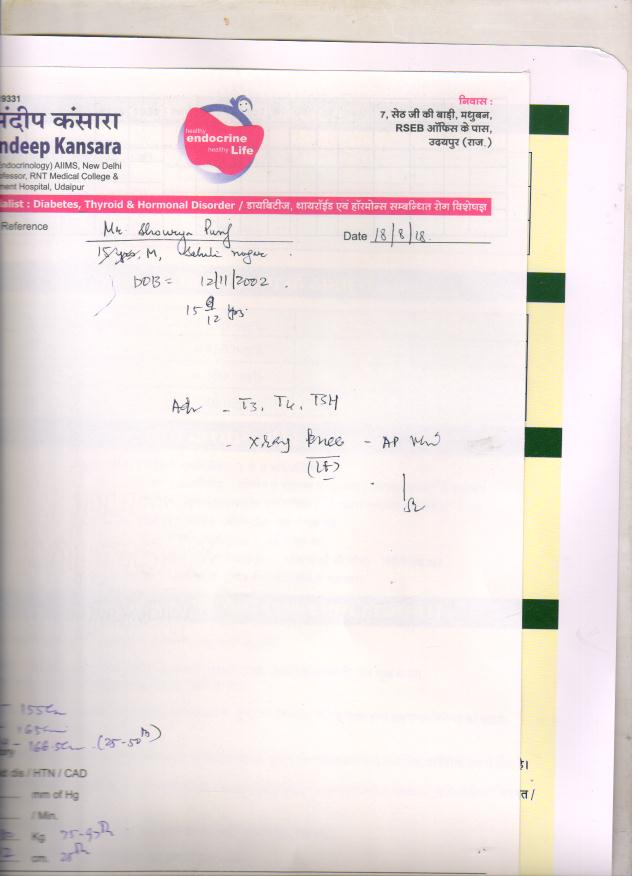 9331
संदीप कंसारा
ndeep Kansara
Endocrinology) AIIMS, New Delhi
ofessor, RNT Medical College &
ment Hospital, Udaipur
healthy
endocrine
healthy Life
निवास :
7, सेठ जी की बाड़ी, मधुबन,
RSEB ऑफिस के पास,
उदयपुर (राज.)
ialist : Diabetes, Thyroid & Hormonal Disorder / डायबिटीज, थायरॉईड एवं हॉरमोन्स सम्बन्धित रोग विशेषज्ञ
Reference Mr. Shourya Punj
Date 18/8/18.
15 yrs, M, nagar
DOB = 12/11/2002.
15 9/12 yrs.
Adv - T3, T4, TSH
- Xray knee - AP view
(Lt)
- 155cm
- 165cm
- 166.5cm (25-50th)
dis / HTN / CAD
mm of Hg
/ Min.
Kg 75-97th
cm. 25th
है।
त /